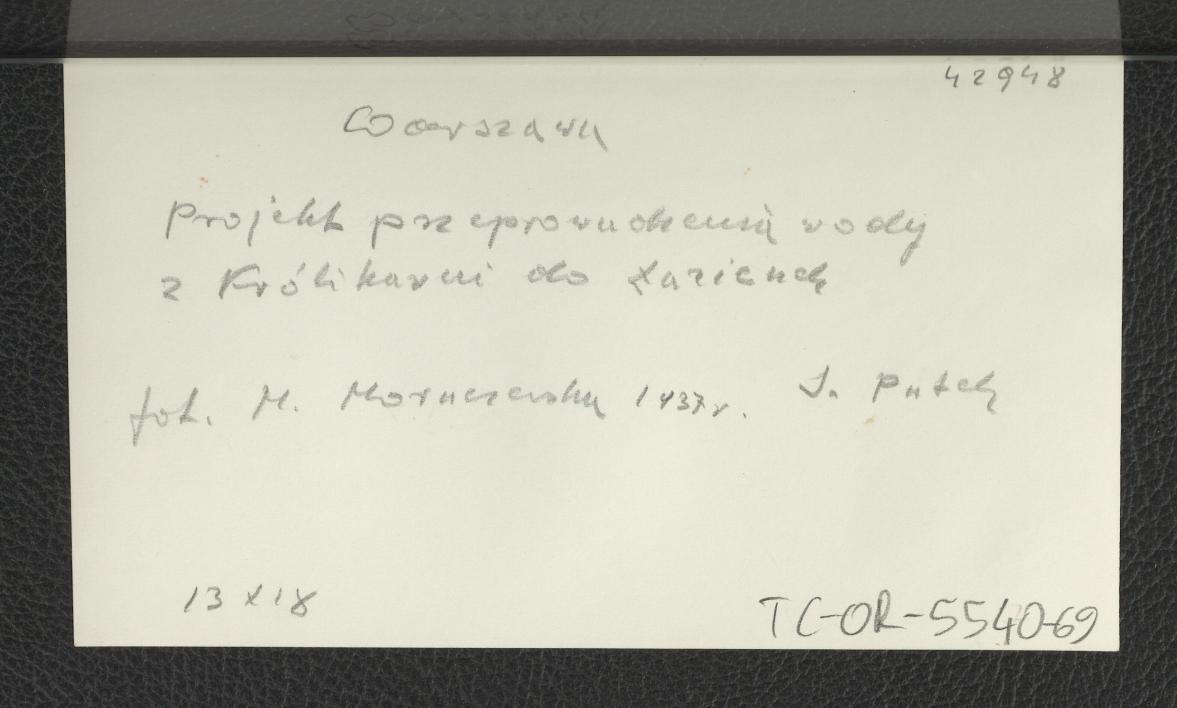 42948
Warszawa
Projekt przeprowadzenia wody
z Królikarni do Łazienek
fot. M. Moraczewska 1937 r. S. Patek
13 x 18
TC-OR-5540-69